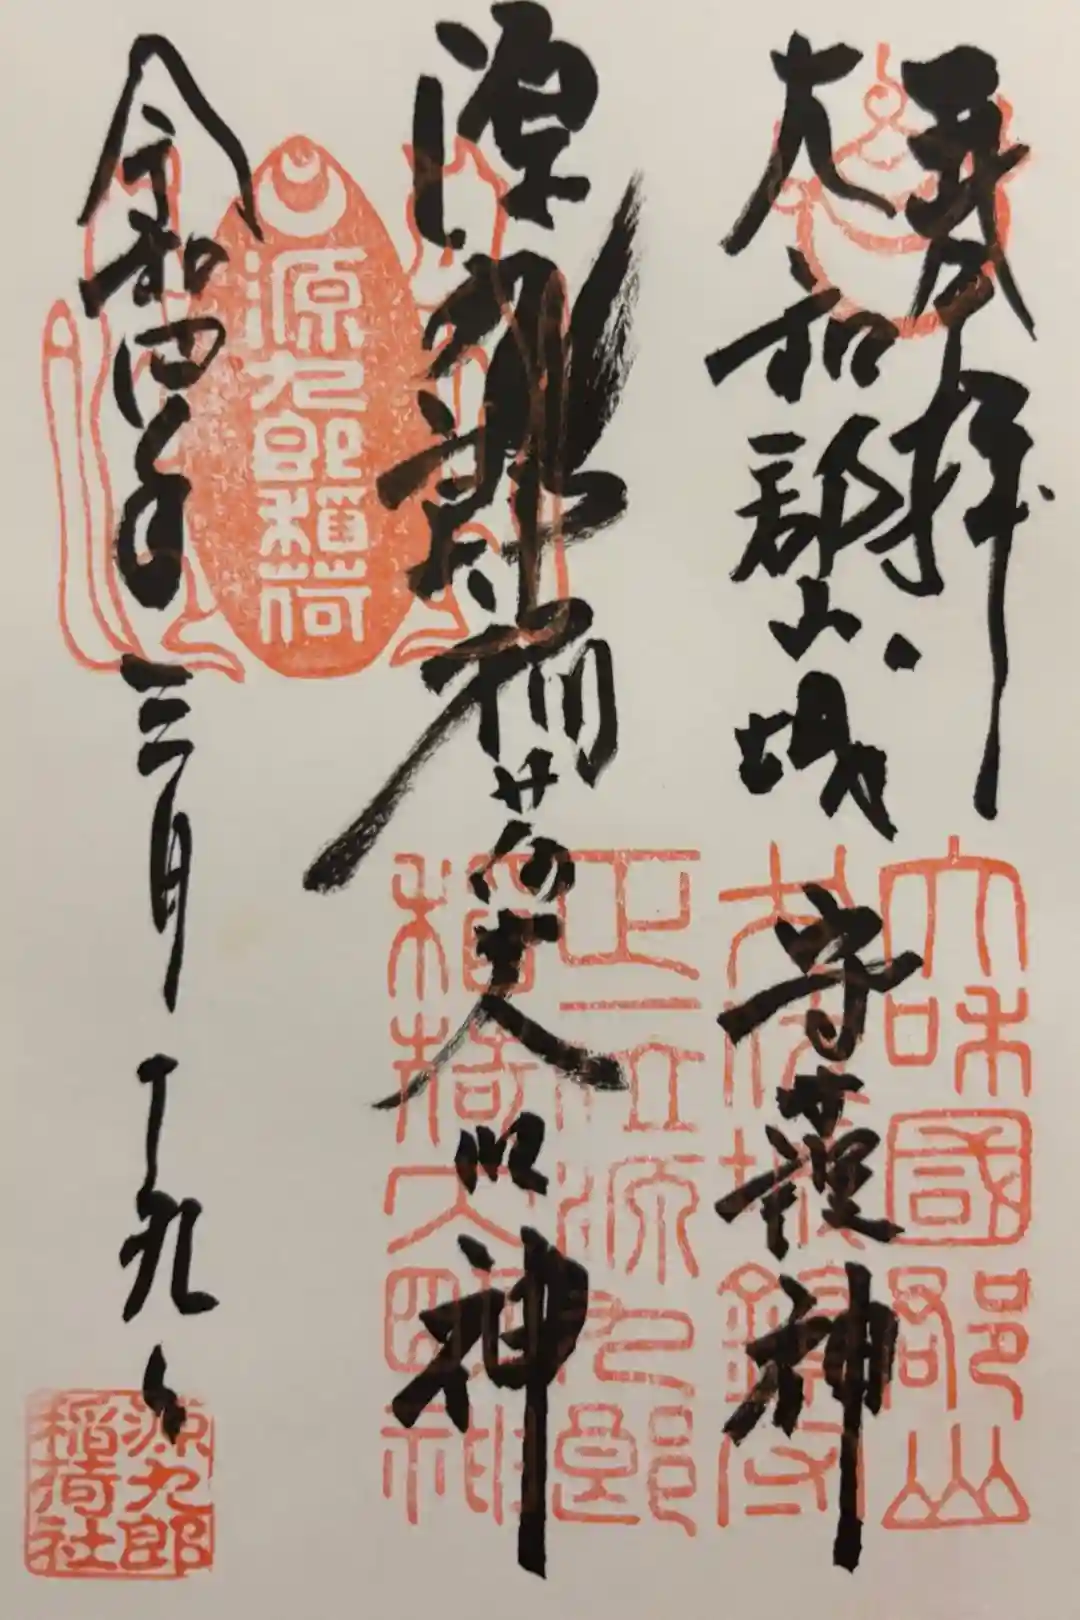 奉拝
大和郡山城 守護神
源九郎稲荷大明神
令和四年三月十九日
源九郎稲荷
大和國郡山
正一位源九郎
稲荷大明神
源九郎
稲荷社